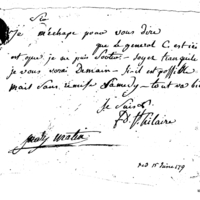 Sir
Je m'échape pour vous dire
que le general C. est ici
est que je ne puis Sortir - Soyez tranquile
je vous verai Demain - s'il est possible
mais Sans remise Samedy - tout va bien
Je Suis
D. St. hilaire
jeudy matin